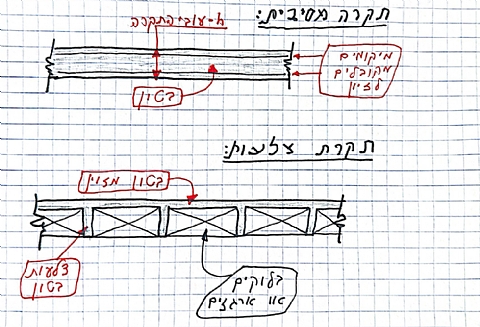 תקרה מסיבית:
h-עובי התקרה
מיקומים
מקובלים
לזיון
בטון
תקרת צלעות:
בטון מזוין
צלעות
בטון
בלוקים
או ארגזים